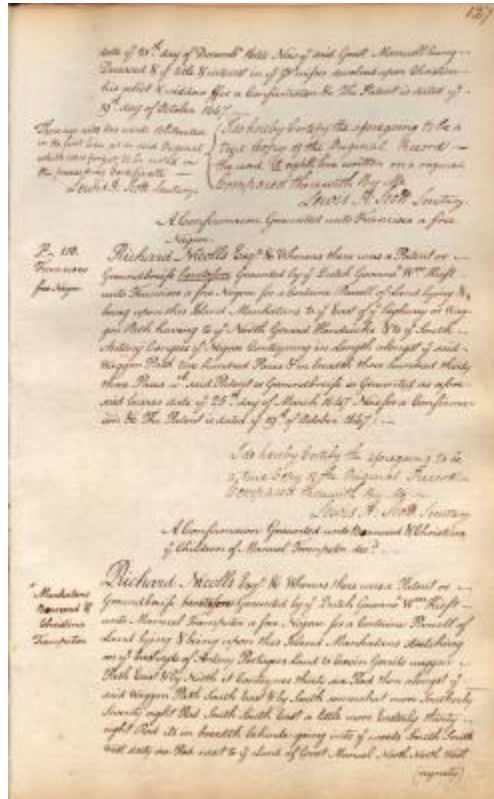 127
date yᵉ 21ᵗʰ day of Decembʳ 1646 Now yᵉ said Groot Manuell being
Deceased & yᵉ title & interest in yᵉ Premises devolved upon Christina
his relict & widdow for a Confirmation &c The Patent is dated yᵉ
19ᵗʰ day of October 1667
in the first line, as in said Original
which were forgot to be noted in
the preceeding Certificate
Lewis A. Scott Secretary
I do hereby Certify the aforegoing to be a
true Copy of the Original Record
the word
Compared therewith By Me
Lewis A. Scott Secretary
A Confirmation Graunted unto Francisco a free
Negroe
Francisco
free Negro
Richard Nicolls Esqʳ &c Whereas there was a Patent or
Groundbriefe heretofore Graunted by yᵉ Dutch Governʳ Wᵐ Kieft
unto Francisco a free Negroe for a Certaine Parcell of Land lying &
being upon this Island Manhatans to yᵉ East of yᵉ highway or Wag-
gon Path having to yᵉ North Gerard Hendricks & to yᵉ South
Antony Congoe yᵉ Negroe Conteyning in Length alongst yᵉ said
Waggon Path two hundred Paces & in breadth three hundred thirty
three Paces wᶜʰ said Patent or Groundbriefe so Graunted as afore
said beares date yᵉ 25ᵗʰ day of March 1647 Now for a Confirma-
con &c The Patent is dated yᵉ 19ᵗʰ of October 1667
I do hereby Certify the aforegoing to be
a true Copy of the Original Record
Compared therewith By Me
Lewis A. Scott Secretary
A Confirmation Graunted unto Bernard & Christina
yᵉ Children of Manuel Trumpeter decᵈ
Manhatans
Bernard &
Christina
Trumpeter
Richard Nicolls Esqʳ &c Whereas there was a Patent or
Groundbriefe heretofore Graunted by yᵉ Dutch Governʳ Wᵐ Kieft
unto Manuel Trumpeter a free Negroe for a Certaine Parcell of
Land lying & being upon this Island Manhatans stretching
on yᵉ East syde of Antony Portugees Land to waggon
Path East & by North it Conteynes thirty six Rod then alongst yᵉ
said Waggon Path South East & by South somewhat more Southerly
Seventy eight Rod South South East a little more Easterly thirty
eight Rod its in breadth behinde going into yᵉ woods South South
West sixty six Rod next to yᵉ Land of Groot Manuel North North West
(ninety)